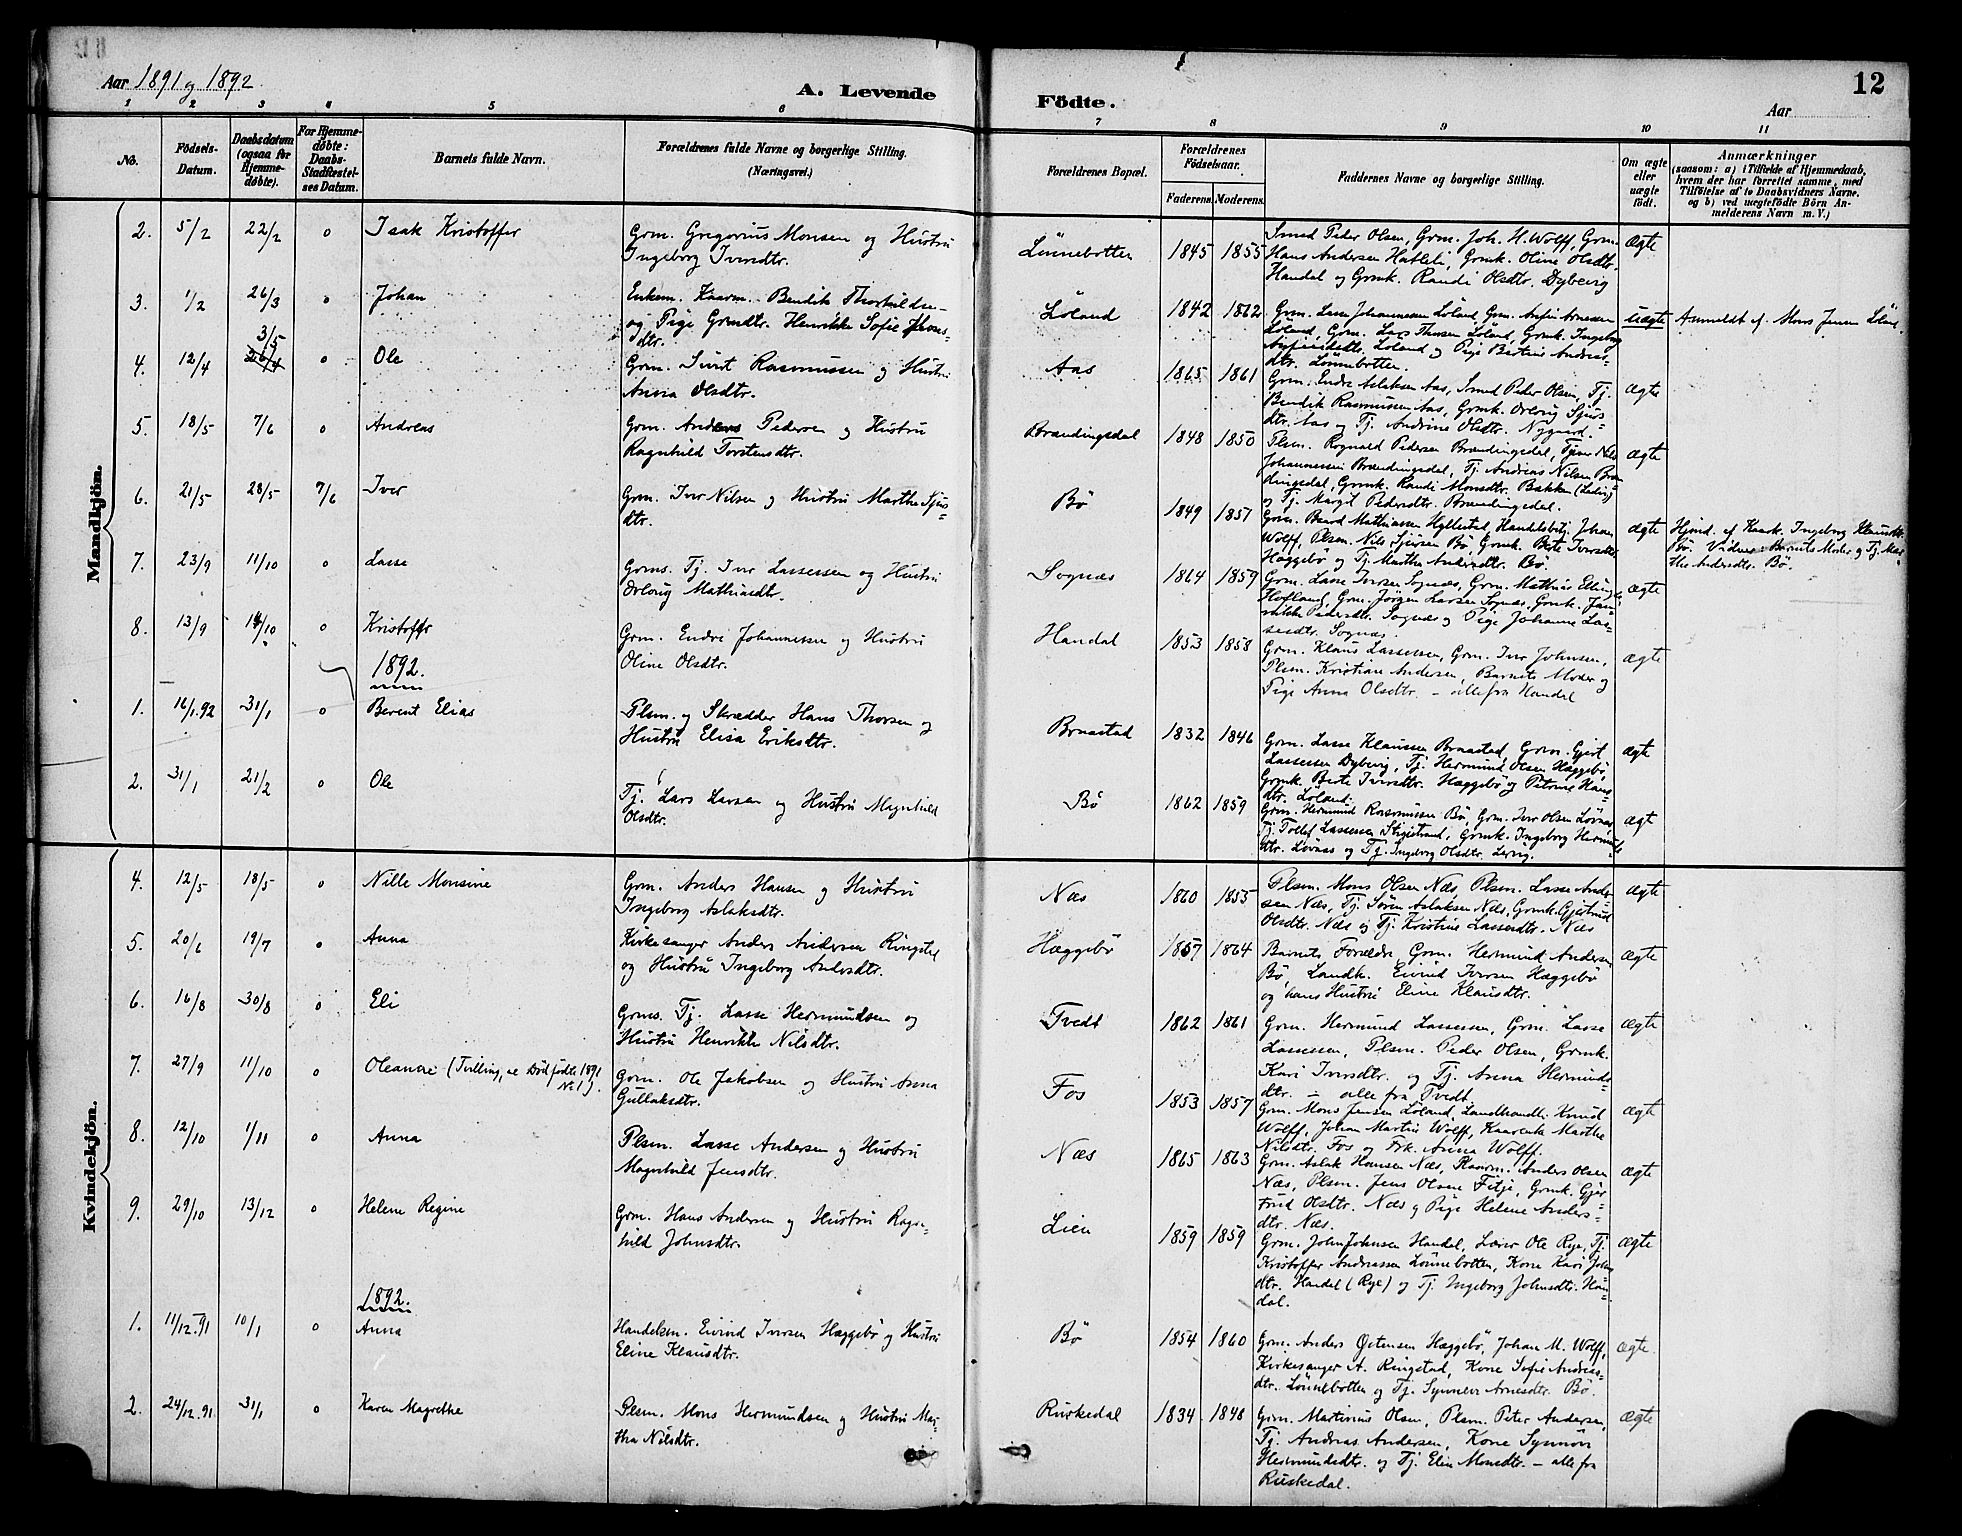 Aar 1891 og 1892.
A. Levende Födte.
12
Aar
1 2 3 4 5 6 7 8 9 10 11
No.
Födsels-Datum.
Daabsdatum (ogsaa for Hjemme-döbte).
For Hjemme-döbte: Daabs-Stadfæstel-ses Datum.
Barnets fulde Navn.
Forældrenes fulde Navne og borgerlige Stilling.
(Næringsvei.)
Forældrenes Bopæl.
Forældrenes Födselsaar.
Faderens. Moderens.
Faddernes Navne og borgerlige Stilling.
Om ægte eller uægte födt.
Anmærkninger
(saasom: a) i Tilfælde af Hjemmedaab,
hvem der har forrettet samme, med
Tilföielse af to Daabsvidners Navne.
og b) ved uægtefödte Börn An-
melderens Navn m. V.)
Mandkjön.
2. 5/2 22/2 0 Isak Kristoffer
Grm. Gregorius Monsen og Hustru
Ingeborg Iversdtr.
Lönnebotten 1845 1855
Smed Peder Olsen, Grm. Joh. H. Wolff, Grm.
Hans Andersen Hatleli, Grmk. Oline Olsdtr.
Handal og Grmk. Randi Olsdtr. Dybevig
ægte
3. 1/2 26/3 0 Johan
Enkem. Kaarm. Bendik Thorkildse-
og Pige Grmdtr. Henrikke Sofie
dtr.
Löland 1842 1862
Grm. Lasse Johannessen Löland, Grm. Anfin Arnesen
Löland, Grm. Lars Thorsen Löland, Grmk. Ingeborg
Anfinsdtr. Löland og Pige Bertine Andreas-
dtr. Lönnebotten.
uægte
Anmeldt af Mons Jensen Löland.
4. 12/4 3/5 26/4 0 Ole
Grm. Sivert Rasmussen og Hustru
Anna Olsdtr.
Aas 1865 1861
Grm. Endre Aslaksen Aas, Smed Peder Olsen, Tj.
Bendik Rasmussen Aas, Grmk. Orlaug Sjurs
dtr. Aas og Tj. Andrine Olsdtr. Nygaard.
ægte
5. 18/5 7/6 0 Andreas
Grm. Anders Pedersen og Hustru
Ragnhild Torstensdtr.
Brændingsdal 1848 1850
Plsm. Rognald Pedersen Brændingsdal, Tjener Nils
Johannessen Brændingsdal, Tj. Andreas Nilsen Bræn
dingsdal, Grmk. Randi Monsdtr. Bakken
og Tj. Margit Pedersdtr. Brændingsdal.
ægte
6. 21/5 28/5 7/6 Iver
Grm. Iver Nilsen og Hustru Marthe Sjurs-
dtr.
Bö 1849 1857
Grm. Baard Mathiassen Hyllestad, Handelsbetj. Johan
Wolff, Plsm. Nils Sjursen Bö, Grmk. Berte Iversdtr.
Hæggebö og Tj. Marthe Andersdtr. Bö.
ægte
Hjmd. af Kaark. Ingeborg Klausdtr.
Bö. Vidner: Barnets Moder og Tj. Mar
the Andersdtr. Bö.
7. 23/9 11/10 0 Lasse
Grms. Tj. Iver Lassessen og Hustru
Orlaug Mathiasdtr.
Sognæs 1864 1859
Grm. Lasse Iversen Sognæs, Grm. Mathias
Hofland, Grm. Jörgen Larsen Sognæs, Grmk. Jan
nikke Pedersdtr. Sognæs og Pige Johanne Las-
sesdtr. Sognæs.
ægte
8. 13/9 14/10 0 Kristoffer
Grm. Endre Johannessen og Hustru
Oline Olsdtr.
Handal 1853 1858
Grm. Klaus Lassessen, Grm. Iver Johnsen,
Plsm. Kristian Andersen, Barnets Moder og
Pige Anna Olsdtr. – alle fra Handal
ægte
1892.
1. 16/1.92 31/1 0 Berent Elias
Plsm. og Skrædder Hans Thorsen og
Hustru Elisa Eriksdtr.
Braastad 1832 1846
Grm. Lasse Klaussen Braastad, Grm. Gjert
Lassessen Dybevig, Tj. Hermund Olsen Hæggebö,
Grmk. Berte Iversdtr. Hæggebö og Petrine Hans-
dtr. Löland.
ægte
2. 31/1 21/2 0 Ole
Tj. Lars Larsen og Hustru Magnhild
Olsdtr.
Bö 1862 1859
Grm. Hermund Rasmussen Bö, Grm. Iver Olsen Lövnæs,
Tj. Tollef Lassessen Stigestrand, Grmk. Ingeborg Hermunds
dtr. Lövnæs og Tj. Ingeborg Olsdtr. Lervig.
ægt
Kvindekjön.
4. 12/5 18/5 0 Nille Monsine
Grm. Anders Hansen og Hustru
Ingeborg Aslaksdtr.
Næs 1860 1855
Plsm. Mons Olsen Næs, Plsm. Lasse Ander
sen Næs, Tj. Sören Aslaksen Næs, Grmk. Gjertrud
Olsdtr. Næs og Tj. Kristine Lassesdtr. Næs
ægte
5. 20/6 19/7 0 Anna
Kirkesanger Anders Andersen Ringstad
og Hustru Ingeborg Andersdtr.
Hæggebö 1857 1864
Barnets Forældre, Grm. Hermund Andersen
Bö, Landh. Eivind Iversen Hæggebö
og hans Hustru Eline Klausdtr.
ægte
6. 16/8 30/8 0 Eli
Grms. Tj. Lasse Hermundsen og
Hustru Henrikke Nilsdtr.
Tvedt 1862 1861
Grm. Hermund Lassessen, Grm. Lasse
Lassessen, Plsm. Peder Olsen, Grmk.
Kari Iversdtr. og Tj. Anna Hermunds-
dtr. – alle fra Tvedt.
ægte
7. 27/9 11/10 0 Oleanne (Tvilling, se Dödfödte 1891
No. 1).
Grm. Ole Jakobsen og Hustru Anna
Gullaksdtr.
Fos 1853 1857
Grm. Mons Jensen Löland, Landhandl. Knud
Wolff, Johan Martin Wolff, Kaarenk. Marthe
Nilsdtr. Fos og Frk. Anna Wolff.
ægte
8. 12/10 1/11 0 Anna
Plsm. Lasse Andersen og Hustru
Magnhild Jensdtr.
Næs 1865 1863
Grm. Aslak Hansen Næs, Kaarm. Anders Olsen
Næs, Plsm. Jens Olsen Fitje, Grmk. Gjer
trud Olsdtr. Næs og Pige Helene Anders-
dtr. Næs.
ægte
9. 29/10 13/12 0 Helene Regine
Grm. Hans Andersen og Hustru Ragn-
hild Johnsdtr.
Lien 1859 1859
Grm. John Johnsen Handal, Lærer Ole Rye, Tj.
Kristoffer Andreassen Lönnebotten, Kone Kari Johns
dtr. Handal (Rye) og Tj. Ingeborg Johnsdtr. Han-
dal.
ægte
1892.
1. 11/12.91 10/1 0 Anna
Handelsm. Eivind Iversen Hæggebö og Hustru
Eline Klausdtr.
Bö 1854 1860
Grm. Anders Östensen Hæggebö, Johan M. Wolff,
Kirkesanger A. Ringstad, Kone Sofie Andreas-
dtr. Lönnebotten og Tj. Synneve Arnesdtr. Bö.
ægte.
2. 24/12.91 31/1 0 Karen Magrethe
Plsm. Mons Hermundsen og Hustru Mar-
tha Nilsdtr.
Ruskedal 1834 1848
Grm. Martinus Olsen, Plsm. Peter Andersen,
Tj. Andreas Andersen, Kone Synnöv
Hermundsdtr. og Tj. Elen Monsdtr. – alle fra
Ruskedal.
ægte